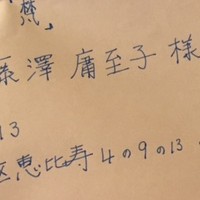 梵」
藤澤 庸至子 様
13
区恵比寿4の9の13